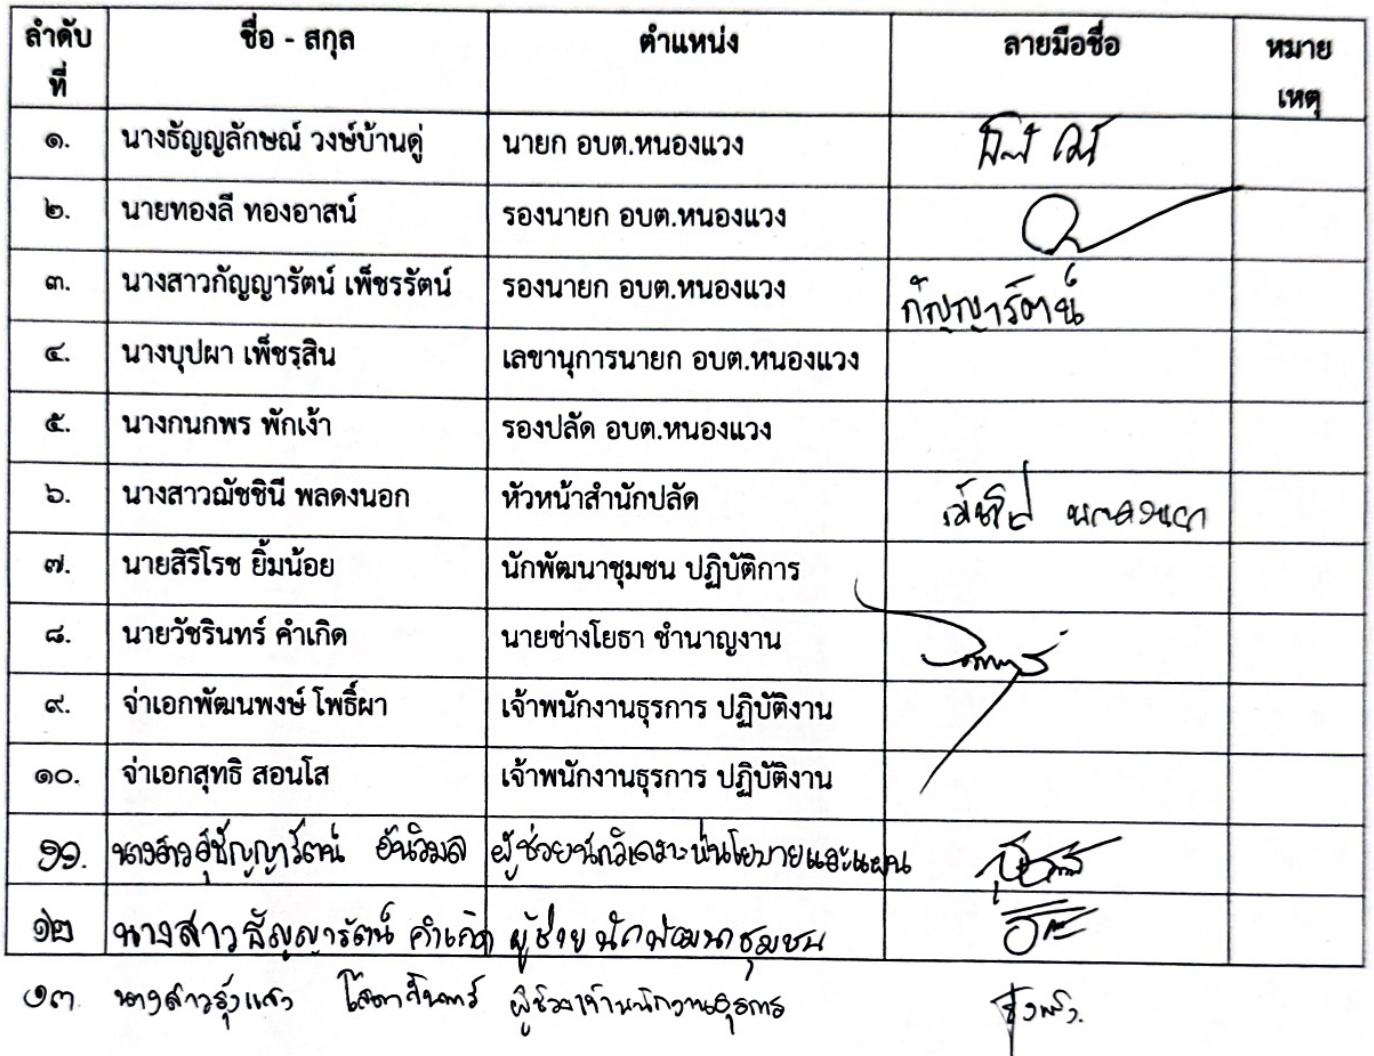 ลำดับที่ ชื่อ - สกุล ตำแหน่ง ลายมือชื่อ หมายเหตุ
๑. นางธัญญลักษณ์ วงษ์บ้านดู่ นายก อบต.หนองแวง
๒. นายทองลี ทองอาสน์ รองนายก อบต.หนองแวง
๓. นางสาวกัญญารัตน์ เพ็ชรรัตน์ รองนายก อบต.หนองแวง กัญญารัตน์
๔. นางบุปผา เพ็ชรสิน เลขานุการนายก อบต.หนองแวง
๕. นางกนกพร พักเง้า รองปลัด อบต.หนองแวง
๖. นางสาวณัชชินี พลดงนอก หัวหน้าสำนักปลัด พลดงนอก
๗. นายสิริโรช ยิ้มน้อย นักพัฒนาชุมชน ปฏิบัติการ
๘. นายวัชรินทร์ คำเกิด นายช่างโยธา ชำนาญงาน
๙. จ่าเอกพัฒนพงษ์ โพธิ์ผา เจ้าพนักงานธุรการ ปฏิบัติงาน
๑๐. จ่าเอกสุทธิ สอนโส เจ้าพนักงานธุรการ ปฏิบัติงาน
๑๑. นางสาว ผู้ช่วยนักวิเคราะห์นโยบายและแผน
๑๒ นางสาวธัญญารัตน์ คำเกิด ผู้ช่วยนักพัฒนาชุมชน
๑๓. นางสาวรุ้งแสง ผู้ช่วยเจ้าพนักงานธุรการ